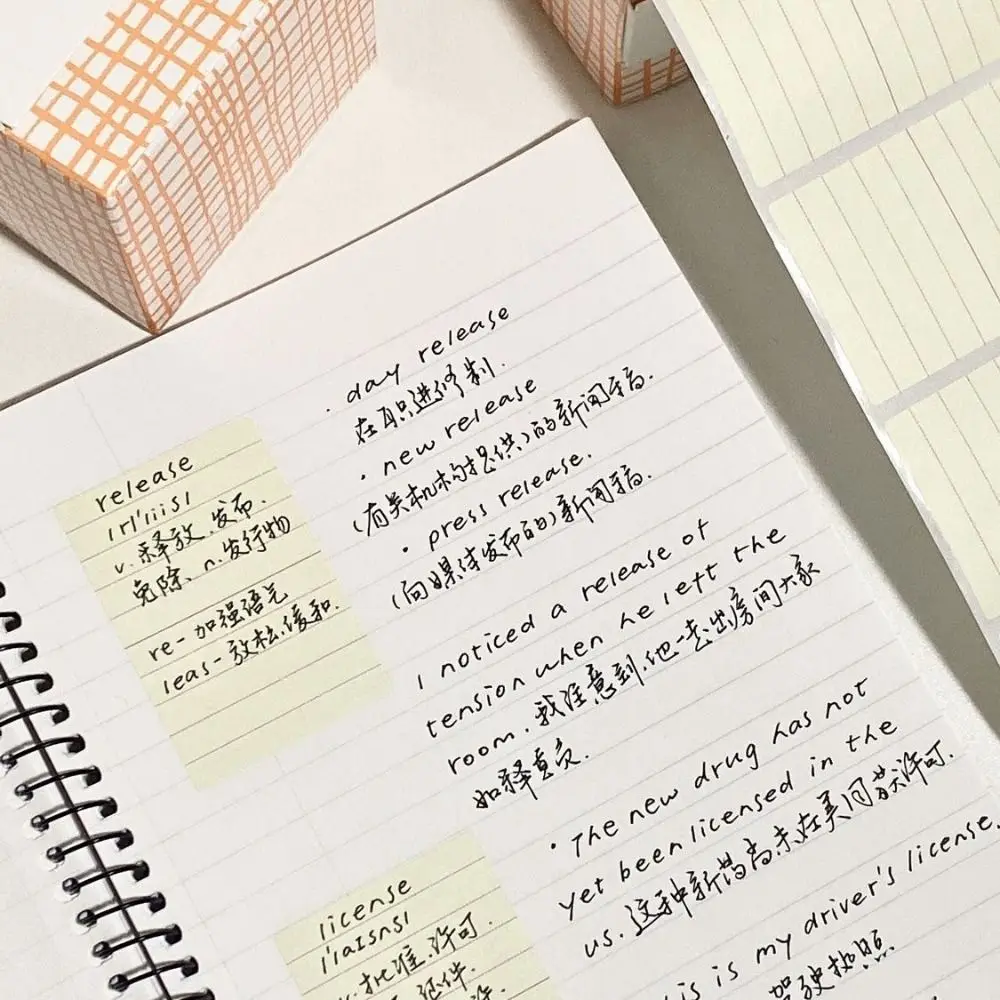 release
/rɪ'liːs/
v.释放、发布.
免除、n.发行物
re-加强语气
leas-放松、缓和.
· day release
在职进修制.
· new release
(有关机构提供)的新闻稿.
· press release.
(向媒体发布的)新闻稿.
I noticed a release of
tension when he left the
room.我注意到,他一走出房间大家
如释重负.
license
/'laɪsns/
v.批准.许可.
证件.
· The new drug has not
yet been licensed in the
us.这种新药尚未在美国获许可.
is is my driver's license.
驾驶执照